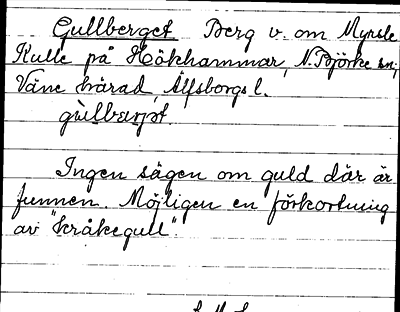 Gullberget Berg v. om Myrsle
Kulle på Hökhammar, N. Björke sn,
Väne härad, Älfsborgs l.
gùllbærjət.
Ingen sägen om guld där är
funnen. Möjligen en förkortning
av "kråkegull".